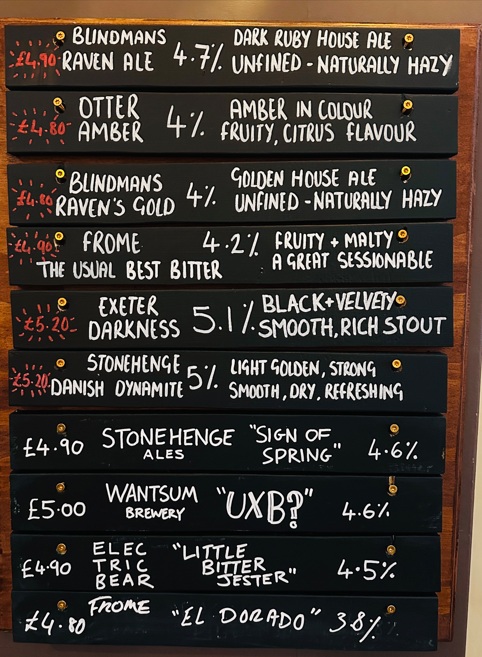 BLINDMANS DARK RUBY HOUSE ALE
£4.90 RAVEN ALE 4.7% UNFINED - NATURALLY HAZY
OTTER AMBER IN COLOUR
£4.80 AMBER 4% FRUITY, CITRUS FLAVOUR
BLINDMANS GOLDEN HOUSE ALE
£4.80 RAVEN'S GOLD 4% UNFINED - NATURALLY HAZY
£4.90 FROME 4.2% FRUITY + MALTY
THE USUAL BEST BITTER A GREAT SESSIONABLE
EXETER BLACK + VELVETY
£5.20 DARKNESS 5.1% SMOOTH, RICH STOUT
STONEHENGE LIGHT GOLDEN, STRONG
£5.20 DANISH DYNAMITE 5% SMOOTH, DRY, REFRESHING
£4.90 STONEHENGE "SIGN OF 4.6%
ALES SPRING"
£5.00 WANTSUM "UXB?" 4.6%
BREWERY
ELEC "LITTLE
£4.90 TRIC BITTER 4.5%
BEAR JESTER"
£4.80 FROME "EL DORADO" 3.8%